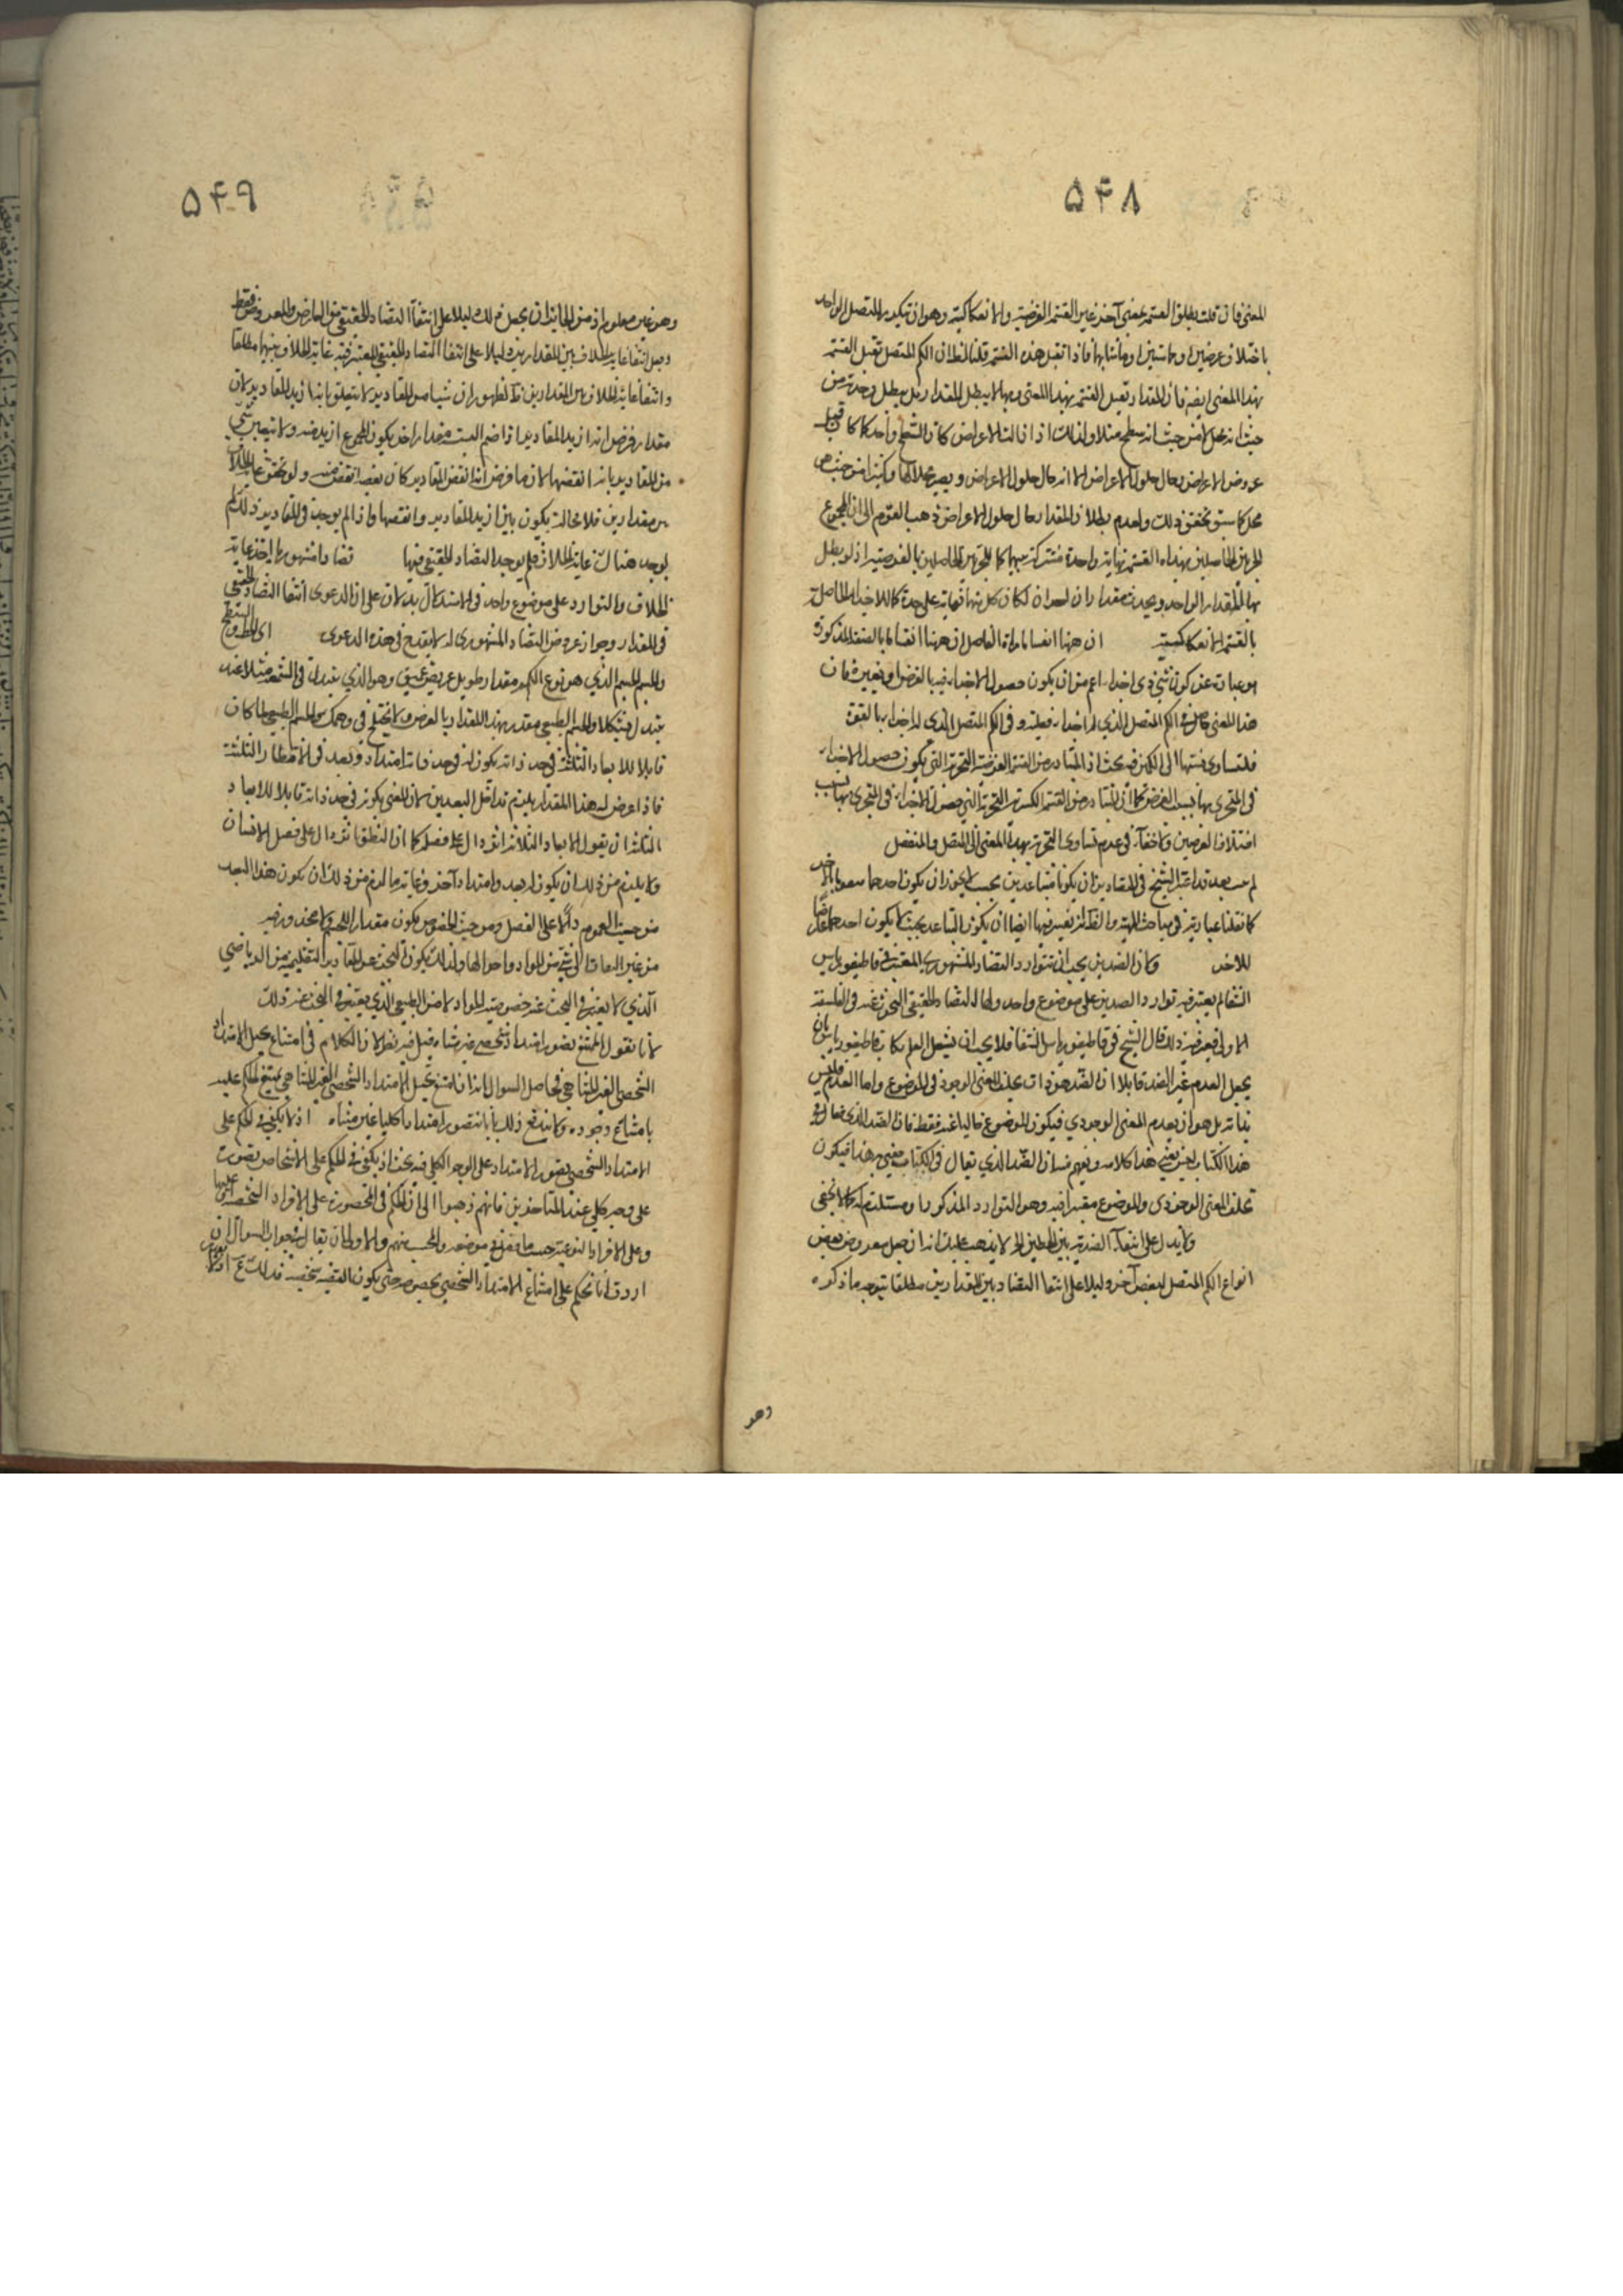 ۵۴۸
المعنى فان قلت يطلق القسمة بمعنى آخر غير القسمة الفرضية والانفكاكية وهو ان تكون للمتصل الواحد
باختلاف عرضين او مماستين او ما شابهما فاذا تقبل هذه القسمة قلنا لنظر ان الكم المتصل تقبل القسمة
بهذا المعنى ايضا فان المقدار تقبل القسمة بهذا المعنى وبها لا يبطل المقدار بل يبطل وحدته من
حيث انه محل لا من حيث انه سطح مثلا ولذلك اذا زالت الاعراض كان السطح واحدا كما كان قبل
عروض الاعراض وحال حلول الاعراض الا انه حال حلول الاعراض ويصير محلا لها وكثيرا من حيث هو
محل كما سبق تحقق ذلك ولعدم بطلان المقدار حال حلول الاعراض ذهب القوم الى ان المجموع
الجزئين الحاصلين بهذه القسمة نهاية واحدة مشتركة بينهما كما للجزئين الحاصلين بالفرضية اذ لو بطل
بها المقدار الواحد ويحدث مقداران آخران لكان لكل منهما نهاية على حدة كما للاجزاء الحاصلة
بالقسمة الانفكاكية ان ههنا انقساما اراد الفاضل ان ههنا انقساما بالصفة المذكورة
هو عبارة عن كون شئ ذى اجزاء اعم من ان يكون حصول الاجزاء فيه بالفرض او بغيره فان
هذا المعنى حاصل فى الكم المنفصل الذي له اجزاء فعلية وفى الكم المتصل الذي له اجزاء بالقوة
فلتساوى نسبتها الى الكم فيه بحث اذ المتبادر من القسمة الفرضية التجزية التى يكون حصول الاجزاء
فى المتجزى بها بسبب الفرض كما ان المتبادر من القسمة الكسرية التجزية التي حصول الاجزاء فى المتجزى بها بسبب
اختلاف العرضين ولا خفاء فى عدم تساوى التجزية بهذا المعنى الى المتصل والمنفصل
لم يبعد قد اعتبر الشيخ فى المتضادين ان يكونا متباعدين بحيث لا يجوز ان يكون احدهما معروضا للآخر
كما نقلنا عبارته فى مباحث الماهية والظ انه يعتبر فيها ايضا ان يكون التباعد بحيث لا يكون احدهما عارضا
للاخر وكان الضدين يجب ان تتوارد التضاد المشهوري المعتبر فى قاطيغورياس
الشفا لم يعتبر فيه توارد الضدين على موضوع واحد وانما التضاد الحقيقي المبحوث عنه فى الفلسفة
الاولى يعتبر فيه ذلك قال الشيخ فى قاطيغورياس الشفا فلا يجب ان يشغل المعلم كتاب قاطيغورياس بان
يجعل العدم غير الضد قابلا ان الضد هو ذات يخلف المعنى الوجود فى الموضوع واما العدم فليس
بذاته بل هو ان يعدم المعنى الوجودي فيكون الموضوع خاليا عنه فقط فان الضد الذي يقال فى
هذا الكتاب ليس يعنى هذا كلامه ويفهم منه ان الضد الذي يقال فى الكتاب يعنى به هذا فيكون
تخلف المعنى الوجودى والموضوع معتبرا فيه وهو التوارد المذكور او مستلزم له كما لا يخفى
ولا يدل على انتفاء الضدية بين الخطين الخ لا يذهب عليك انه ان جعل معروض بعض
انواع الكم المتصل لبعض آخر دليلا على انتفا التضاد بين المقدارين مطلقا يتوجه ما ذكره
وهو
۵۴۹
وهو غير معلوم اذ من الجائز ان يجعل ذلك دليلا على انتفاء التضاد الحقيقي بين العارض والمعروض فقط
وجعل انتفا غاية الخلاف بين المقدارين دليلا على انتفا التضاد الحقيقي المعتبر فيه غاية الخلاف بينهما مطلقا
وانتفاء غاية الخلاف بين المقدارين ظ لظهور ان شيئا من المقادير لا يتعلق بانه ازيد المقادير لان
مقدار فرض انه ازيد المقادير اذا ضم اليه مقدار اخر يكون المجموع ازيد منه ولا يتعين شئ
من المقادير بانه انقصها لان ما فرض انه انقص المقادير كان نصفه انقص منه ولو تحقق غاية الخلاف
بين مقدارين فلا محالة يكون بين ازيد المقادير وانقصها واذا لم يوجد فى المقادير ذلك لم
يوجد هناك غاية الخلاف فلم يوجد التضاد الحقيقي فيها تضادا مشهوريا اخذ غاية
الخلاف والتوارد على موضوع واحد فى الاستدلال يدلان على ان الدعوى انتفا التضاد الحقيقي
فى المقدار وجواز عروض التضاد المشهوري له لا يقدح فى هذه الدعوى اى الخط والسطح
والجسم الجسم الذي هو نوع الكم هو مقدار طويل عريض عميق وهو الذي يتبدل فى الشمعة مثلا عند
تبدل اشكالا والجسم الطبيعي مقدر بهذه المقدار بالعرض ولا يختلج فى وهمك ان الجسم الطبيعي لما كان
قابلا للابعاد الثلثة فى حد ذاته يكون له فى حد ذاته امتداد وبعد فى الاقطار الثلثة
فاذا عرض له هذا المقدار يلزم تداخل البعدين لان المعنى يكونه فى حد ذاته قابلا للابعاد
الثلثة ان يقول الابعاد الثلاثة اثر دال على فصله كما ان النطق اثر دال على فصل الانسان
ولا يلزم من ذلك ان يكون له بعد وامتداد آخر وغاية ما لزم من ذلك ان يكون هذا البعد
من حيث العموم دالا على الفصل ومن حيث الخصوص يكون مقدار الجسم ولا محذور فيه
من غير التفات الى شئ من المواد واحوالها ولذلك يكون البحث عن المقادير التعليمية من الرياضي
الذي لا يعتبر فى البحث عنه خصوصية المواد لا من الطبيعي الذي يعتبر فى البحث عنه ذلك
لأنا نقول الممتنع تصور امتداد شخصي غير متناه قيل فيه نظر لان الكلام فى امتناع تخيل الامتداد
الشخصي الغير المتناهي فحاصل السوال انه ان امتنع تخيل الامتداد الشخصي الغير المتناهي يمتنع الحكم عليه
بامتناع وجوده ولا يندفع ذلك بانا نتصور امتدادا كليا غير متناه اذ لا يكفي فى الحكم على
الامتداد الشخصي تصور الامتداد على الوجه الكلي فيه بحث اذ يكفي فى الحكم على الاشخاص تصورت
على وجه كلي عند المتاخرين فانهم ذهبوا الى ان الحكم فى المحصورة على الافراد الشخصية عليها
وعلى الافراد النوعية حسب ما فصل فى موضعه والمحسب منهم والاولى ان يقال فى جواب السوال ان
اردت انا نحكم على امتناع الامتداد الشخصي بخصوصه حتى يكون القضية شخصية فذلك مم